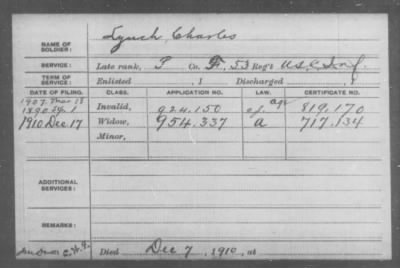 Lynch, Charles
NAME OF SOLDIER:
SERVICE: Late rank, P Co. F, 53 Reg't U.S.C. Inf.
TERM OF SERVICE: Enlisted , 1 Discharged , 1
DATE OF FILING. CLASS. APPLICATION NO. LAW. CERTIFICATE NO.
1907 Mar 18 age
1890 1 Invalid, 924.150 819.170
1910 Dec 17 Widow, 954.337 a 717.134
Minor,
ADDITIONAL SERVICES:
REMARKS:
Died Dec 7, 1910, at